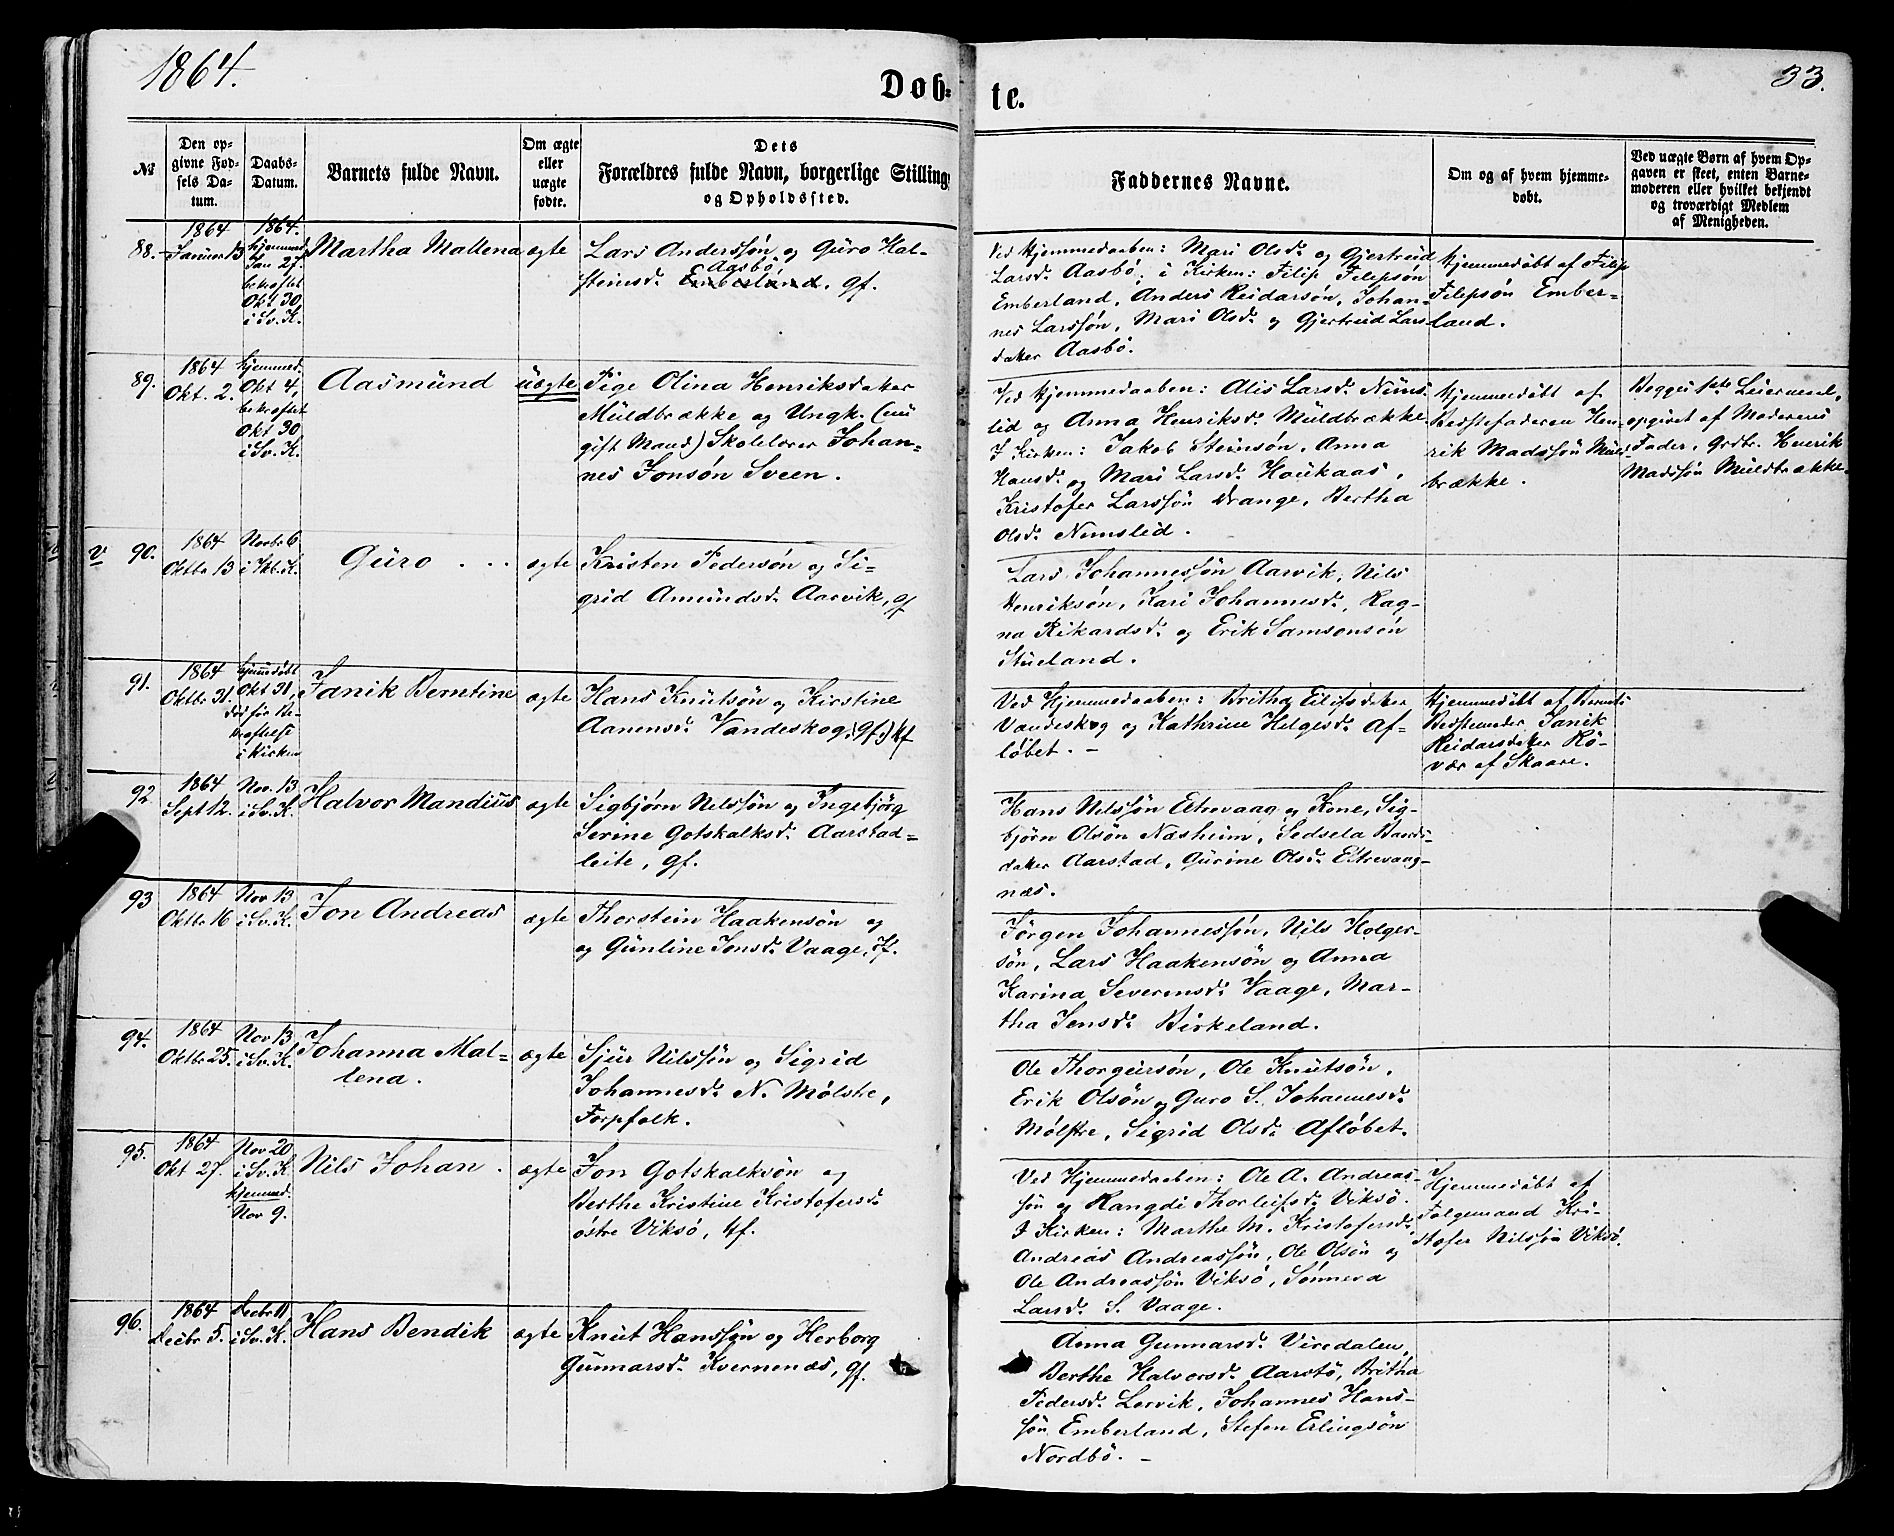 1864.
Døb-
te.
33.
№
Den op-
givne Fød-
sels Da-
tum.
Daabs-
Datum.
Barnets fulde Navn.
Om ægte
eller
uægte
fødte.
Dets
Forældres fulde Navn, borgerlige Stilling
og Opholdssted.
Faddernes Navne.
Om og af hvem hjemme-
døbt.
Ved uægte Børn af hvem Op-
gaven er skeet, enten Barne-
moderen eller hvilket bekjendt
og troværdigt Medlem
af Menigheden.
88.
1864
Januar 13
1864.
hjemmed.
Jan 27.
bekræftet
Okt 30,
i Sv. K.
Martha Mallena
ægte
Lars Anderssøn og Guro Hal-
Aasbø
steinsd. Emberland. gf.
Ved Hjemmedaaben: Mari Olsd. og Gjertrud
Larsd. Aasbø, i Kirken: Filip Filipsøn
Emberland, Anders Reidarsøn, Johan-
nes Larssøn, Mari Olsd. og Gjertrud Lars-
datter Aasbø.
Hjemmedøbt af Filip
Filipsøn Ember-
land.
89.
1864
Okt. 2.
hjemmed.
Okt 4,
bekræftet
Okt 30
i Sv. K.
Aasmund
uægte
Pige Olina Henriksdatter
Muldbrække og Ungk. (nu
gift Mand) Skolelærer Johan-
nes Jonsøn Sveen.
Ved Hjemmedaaben: Alis Larsd. Nims-
lid og Anna Henriksd. Muldbrække
I Kirken: Jakob Steinsøn, Anna
Hansd. og Mari Larsd. Houkaas,
Kristofer Larssøn Vrange, Bertha
Olsd. Nimslid.
Hjemmedøbt af
Bedstefaderen Hen-
rik Madssøn Muld-
brække.
Begges 1ste Leiermaal,
opgivet af Moderens
Fader, Grdbr. Henrik
Madssøn Muldbrække.
v 90.
1864
Oktbr 13
Novbr 6
i Skt. K.
Guro . . .
ægte
Kristen Pedersøn og Si-
grid Amundsd. Aarvik, gf
Lars Johannessøn Aarvik, Nils
Henriksøn, Kari Johannesd., Rag-
na Rikardsd. og Erik Samsonsøn
Stueland.
91.
1864
Oktbr 31
hjemmedøbt
Okt 31,
død før Be-
kræftelse
i Kirken
Janik Berntine
ægte
Hans Knutsøn og Kirstine
Aanensd. Vandeskog, (gf.) Hf
Ved Hjemmedaaben: Britha Eilifsdatter
Vandeskog og Kathrine Helgesd. Af-
løbet. -
Hjemmedøbt af Barnets
Bedstemoder Janik
Reidarsdatter Rø-
vær af Skaare.
92.
1864
Sept 12.
Nov. 13
i Sv. K.
Halvor Mandius
ægte
Sigbjørn Nilssøn og Ingebjørg
Serine Gotskalksd. Aarstad-
leite, gf.
Hans Nilssøn Eltrevaag og Kone, Sig-
bjørn Olsøn Næsheim, Sedsela Baards-
datter Aarstad, Gurine Olsd. Eltrevaag-
næs.
93
1864
Oktbr 16
Nov 13
i Sv. K.
Jon Andreas
ægte
Thorstein Haakensøn og
og Gunline Jonsd. Vaage, If.
Jørgen Johannessøn, Nils Holger-
søn, Lars Haakensøn og Anna
Karina Severinsd. Vaage, Mar-
tha Jensd. Birkeland.
94.
1864
Oktbr 25.
Nov 13
i Sv. K.
Johanna Mal-
lena.
ægte
Sjur Nilssøn og Sigrid
Johannesd. N. Mølstre,
Forpfolk.
Ole Thorgursøn, Ole Knutsøn,
Erik Olsøn og Guro S. Johannesd.
Mølstre, Sigrid Olsd. Afløbet.
95.
1864
Okt 27.
Nov 20
i Sv. K
hjemmed.
Nov 9.
Nils Johan.
ægte
Jon Gotskalksøn og
Berthe Kristine Kristofersd.
østre Viksø, Hf.
Ved Hjemmedaaben: Ole A. Andreas-
søn og Rangdi Thorleifsd. Viksø.
I Kirken: Marthe M. Kristofersd.
Andreas Andreassøn, Ole Olsøn og
Ole Andreassøn Viksø, Sønneva
Larsd. S. Vaage.
Hjemmedøbt af
Følgemand Kri-
stofer Nilssøn Viksø.
96.
1864
Decbr 5.
Decbr 11
i Sv. K.
Hans Bendik
ægte
Knut Hanssøn og Herborg
Gunnarsd. Kvernenæs, gf.
Anna Gunnarsd. Viredalen,
Berthe Halvorsd. Aarstø, Britha
Pedersd. Lervik, Johannes Hans-
søn Emberland, Stefen Erlingsøn
Nordbø. -